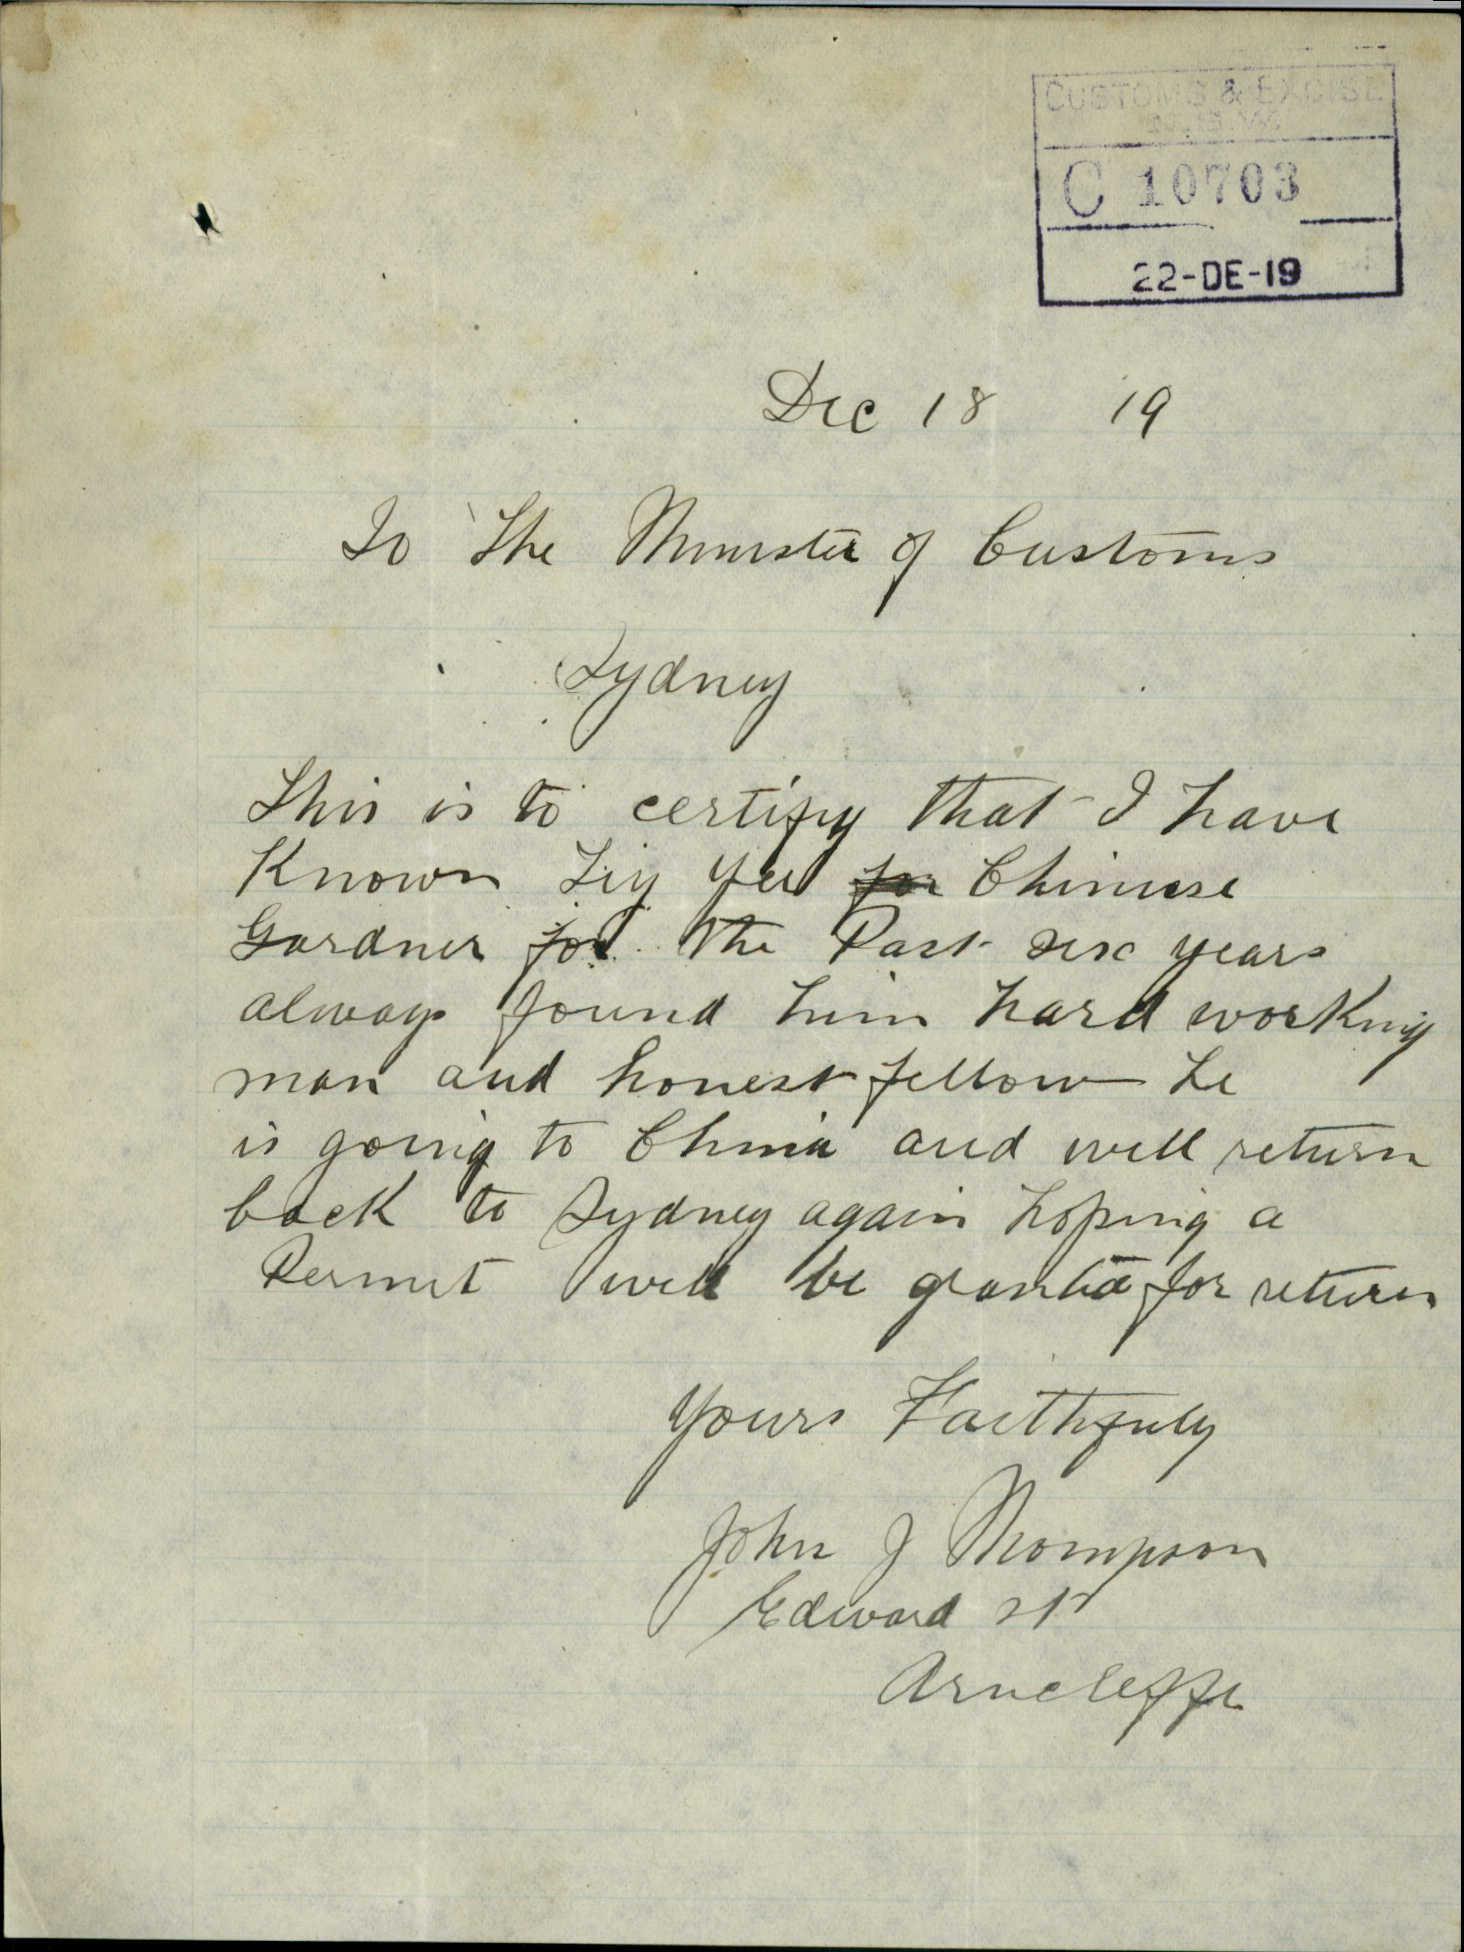 CUSTOMS & EXCISE
N.S.W.
C 10703
22-DE-19
Dec 18 19
To The Minister of Customs
Sydney
This is to certify that I have
Known Yee for Chinese
Gardner for the Past six years
always found him hard working
man and honest fellow he
is going to China and will return
back to Sydney again hoping a
Permit will be granted for return
Yours Faithfuly
John J Thompson
Edward St
Arncliffe